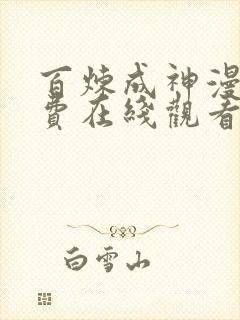 百炼成神漫
费在綫觀看
白雪山